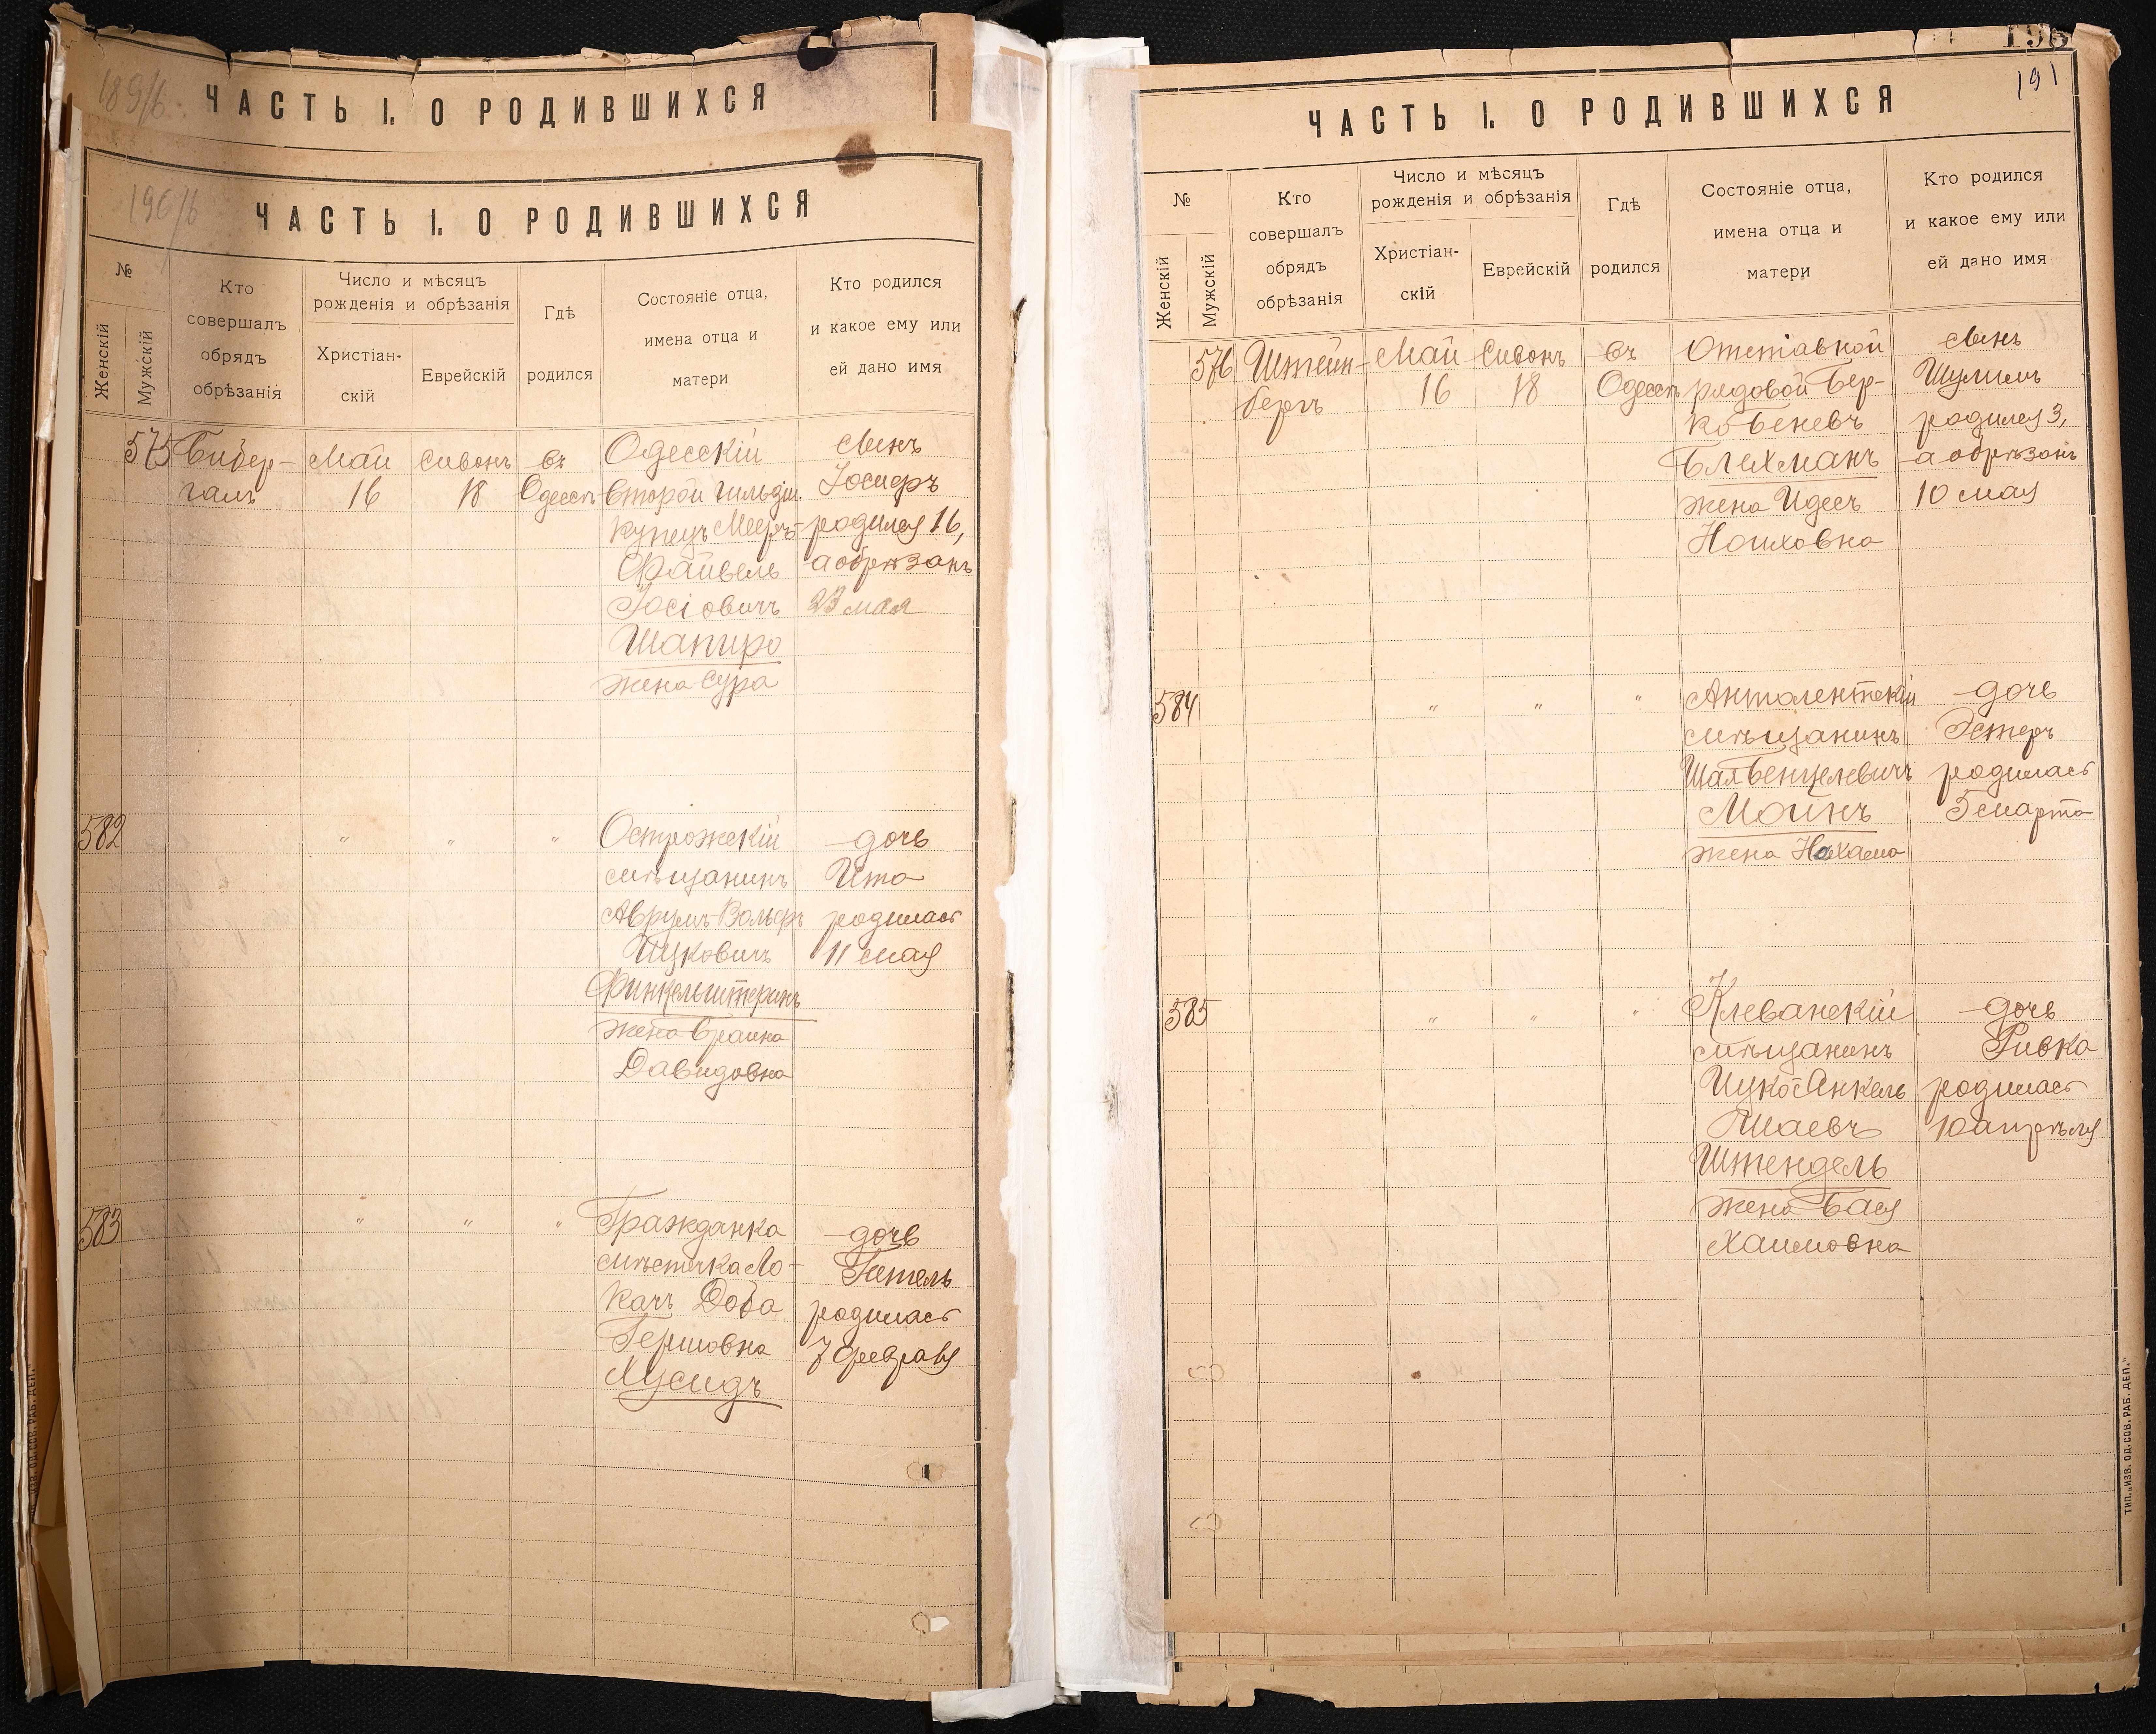 189/б.
ЧАСТЬ I. О РОДИВШИХСЯ
190/б
ЧАСТЬ I. О РОДИВШИХСЯ
№
Женскій
Мужскій
Кто
совершалъ
обрядъ
обрѣзанія
Число и мѣсяцъ
рожденія и обрѣзанія
Христіан-
скій
Еврейскій
Гдѣ
родился
Состояніе отца,
имена отца и
матери
Кто родился
и какое ему или
ей дано имя
575
Бибер-
галъ
Май
16
Сивонъ
18
въ
Одессѣ
Одесскій
второй гильдіи
купецъ Мееръ-
Файвель
Іосіовичъ
Шапиро
жена Сура
сынъ
Іосифъ
родился 16,
а обрѣзанъ
23 мая
582
" " "
Острожскій
мѣщанинъ
Аврумъ-Вольфъ
Ицковичъ
Финкельштернъ
жена Фраина
Давидовна
дочь
Ита
родилась
11 мая
583
" " "
Гражданка
мѣстечка Ло-
качъ Доба
Гершовна
Мусидъ
дочь
Гитель
родилась
7 февраля
196
191
ЧАСТЬ I. О РОДИВШИХСЯ
№
Женскій
Мужскій
Кто
совершалъ
обрядъ
обрѣзанія
Число и мѣсяцъ
рожденія и обрѣзанія
Христіан-
скій
Еврейскій
Гдѣ
родился
Состояніе отца,
имена отца и
матери
Кто родился
и какое ему или
ей дано имя
576
Штейн-
бергъ
Май
16
Сивонъ
18
въ
Одессѣ
Отставной
рядовой Бер-
ко Беневъ
Блехманъ
жена Идесъ
Ноиховна
сынъ
Шулимъ
родился 3,
а обрѣзанъ
10 мая
584
" " "
Антолентскій
мѣщанинъ
Шая Бенцелевичъ
Моинъ
жена Нахама
дочь
Эстеръ
родилась
5 марта
585
" " "
Клеванскій
мѣщанинъ
Ицко-Янкель
Шаевъ
Штендель
жена Бася
Хаимовна
дочь
Ривка
родилась
10 апрѣля
ТИП. „ИЗВ. ОД. СОВ. РАБ. ДЕП."